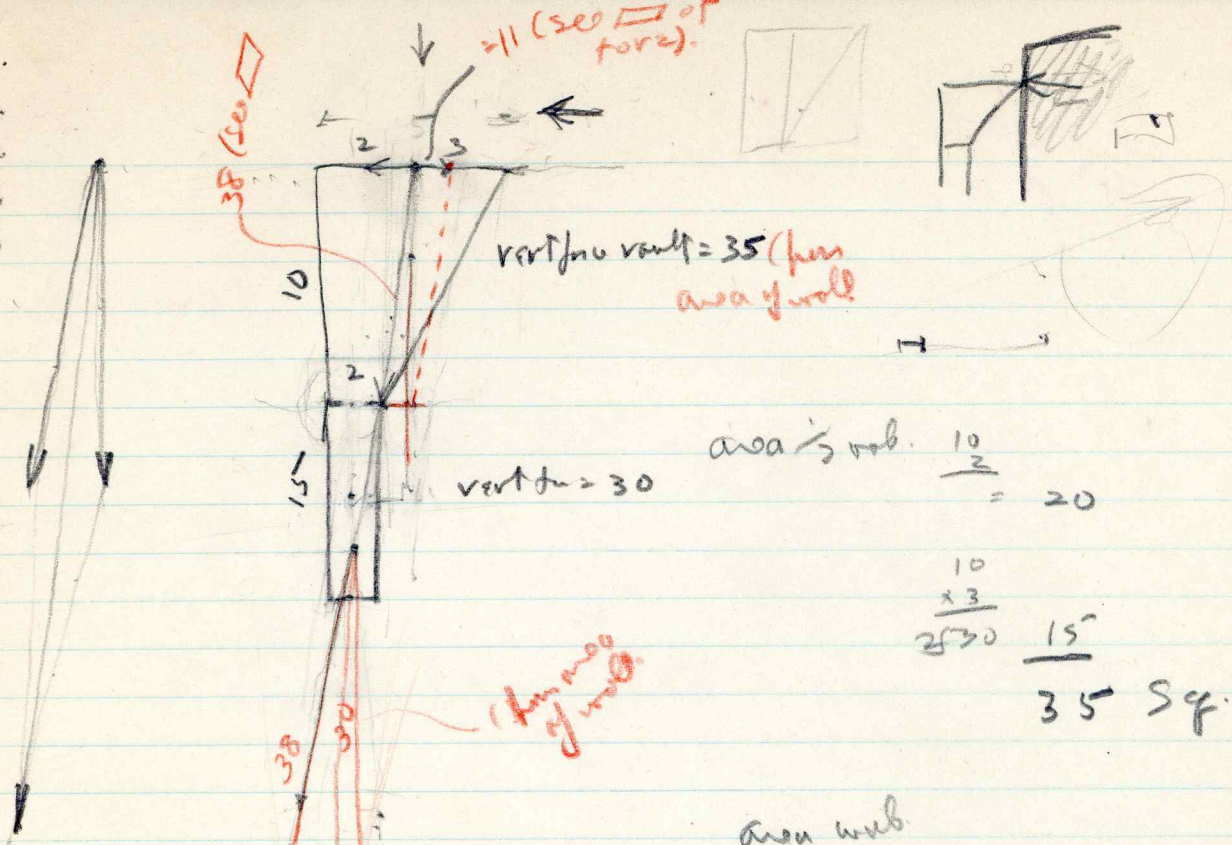 =11 (see ▱ of
forz).
38 (see ▱
2
3
10
vert from vault = 35 (from
area of wall
2
15
vert for = 30
area of wall.
10
2
= 20
10
x 3
2)30
15
35 Sq.
(from area
of wall.
38
30
area wall